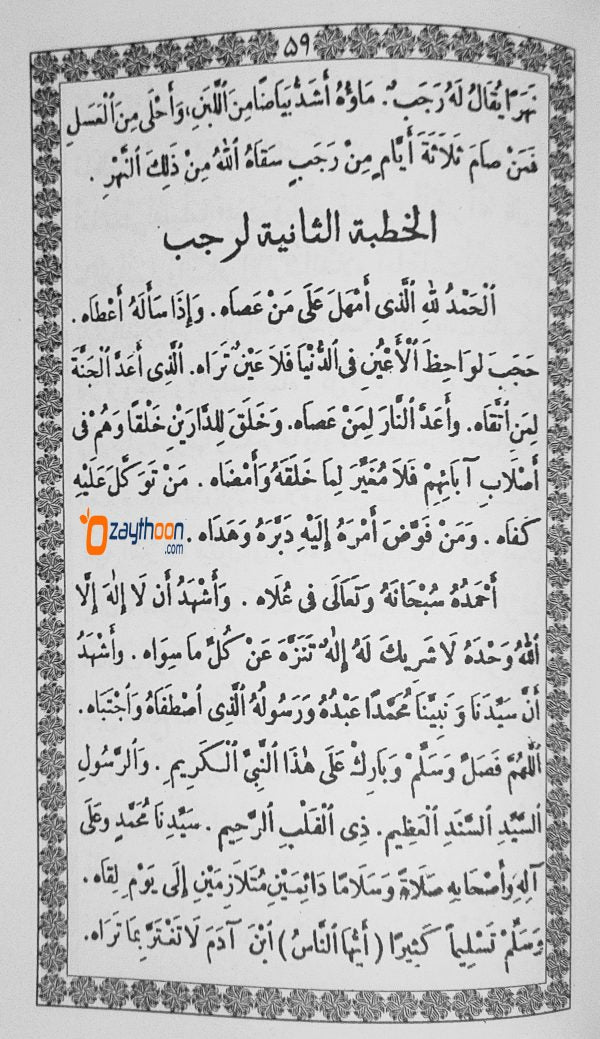 ٥٩
نَهَرًا يُقَالُ لَهُ رَجَبٌ. مَاؤُهُ أَشَدُّ بَيَاضًا مِنَ اللَّبَنِ، وَأَحْلَى مِنَ الْعَسَلِ
فَمَنْ صَامَ ثَلَاثَةَ أَيَّامٍ مِنْ رَجَبٍ سَقَاهُ اللهُ مِنْ ذَلِكَ النَّهْرِ .
الخطبة الثانية لرجب
اَلْحَمْدُ للهِ الَّذِى أَمْهَلَ عَلَى مَنْ عَصَاه . وَإِذَا سَأَلَهُ أَعْطَاه .
حَجَبَ لَوَاحِظَ الْأَعْيُنِ فِى الدُّنْيَا فَلَا عَيْنٌ تَرَاه. الَّذِى أَعَدَّ الْجَنَّةَ
لِمَنِ اتَّقَاه. وَأَعَدَّ النَّارَ لِمَنْ عَصَاه. وَخَلَقَ لِلدَّارَيْنِ خَلْقًا وَهُمْ فِى
أَصْلَابِ آبَائِهِمْ فَلَا مُغَيِّرَ لِمَا خَلَقَهُ وَأَمْضَاه . مَنْ تَوَكَّلَ عَلَيْهِ
كَفَاه . وَمَنْ فَوَّضَ أَمْرَهُ إِلَيْهِ دَبَّرَهُ وَهَدَاه .
zaythoon.com
أَحْمَدُهُ سُبْحَانَهُ وَتَعَالَى فِى عُلَاه . وَأَشْهَدُ أَن لَا إِلٰهَ إِلَّا
اللهُ وَحْدَهُ لَا شَرِيكَ لَهُ إِلٰهٌ تَنَزَّهَ عَنْ كُلِّ مَا سِوَاه . وَأَشْهَدُ
أَنَّ سَيِّدَنَا وَنَبِيَّنَا مُحَمَّدًا عَبْدُهُ وَرَسُولُهُ الَّذِى اصْطَفَاهُ وَاجْتَبَاه.
اَللّٰهُمَّ فَصَلِّ وَسَلِّمْ وَبَارِكْ عَلَى هٰذَا النَّبِيِّ الْكَرِيمِ . وَالرَّسُولِ
السَّيِّدِ السَّنَدِ الْعَظِيمِ . ذِى الْقَلْبِ الرَّحِيمِ . سَيِّدِنَا مُحَمَّدٍ وَعَلَى
آلِهِ وَأَصْحَابِهِ صَلَاةً وَسَلَامًا دَائِمَيْنِ مُتَلَازِمَيْنِ إِلَى يَوْمِ لِقَاه .
وَسَلِّمْ تَسْلِيمًا كَثِيرًا (أَيُّهَا النَّاسُ) ابْنَ آدَمَ لَا تَغْتَرَّ بِمَا تَرَاه .